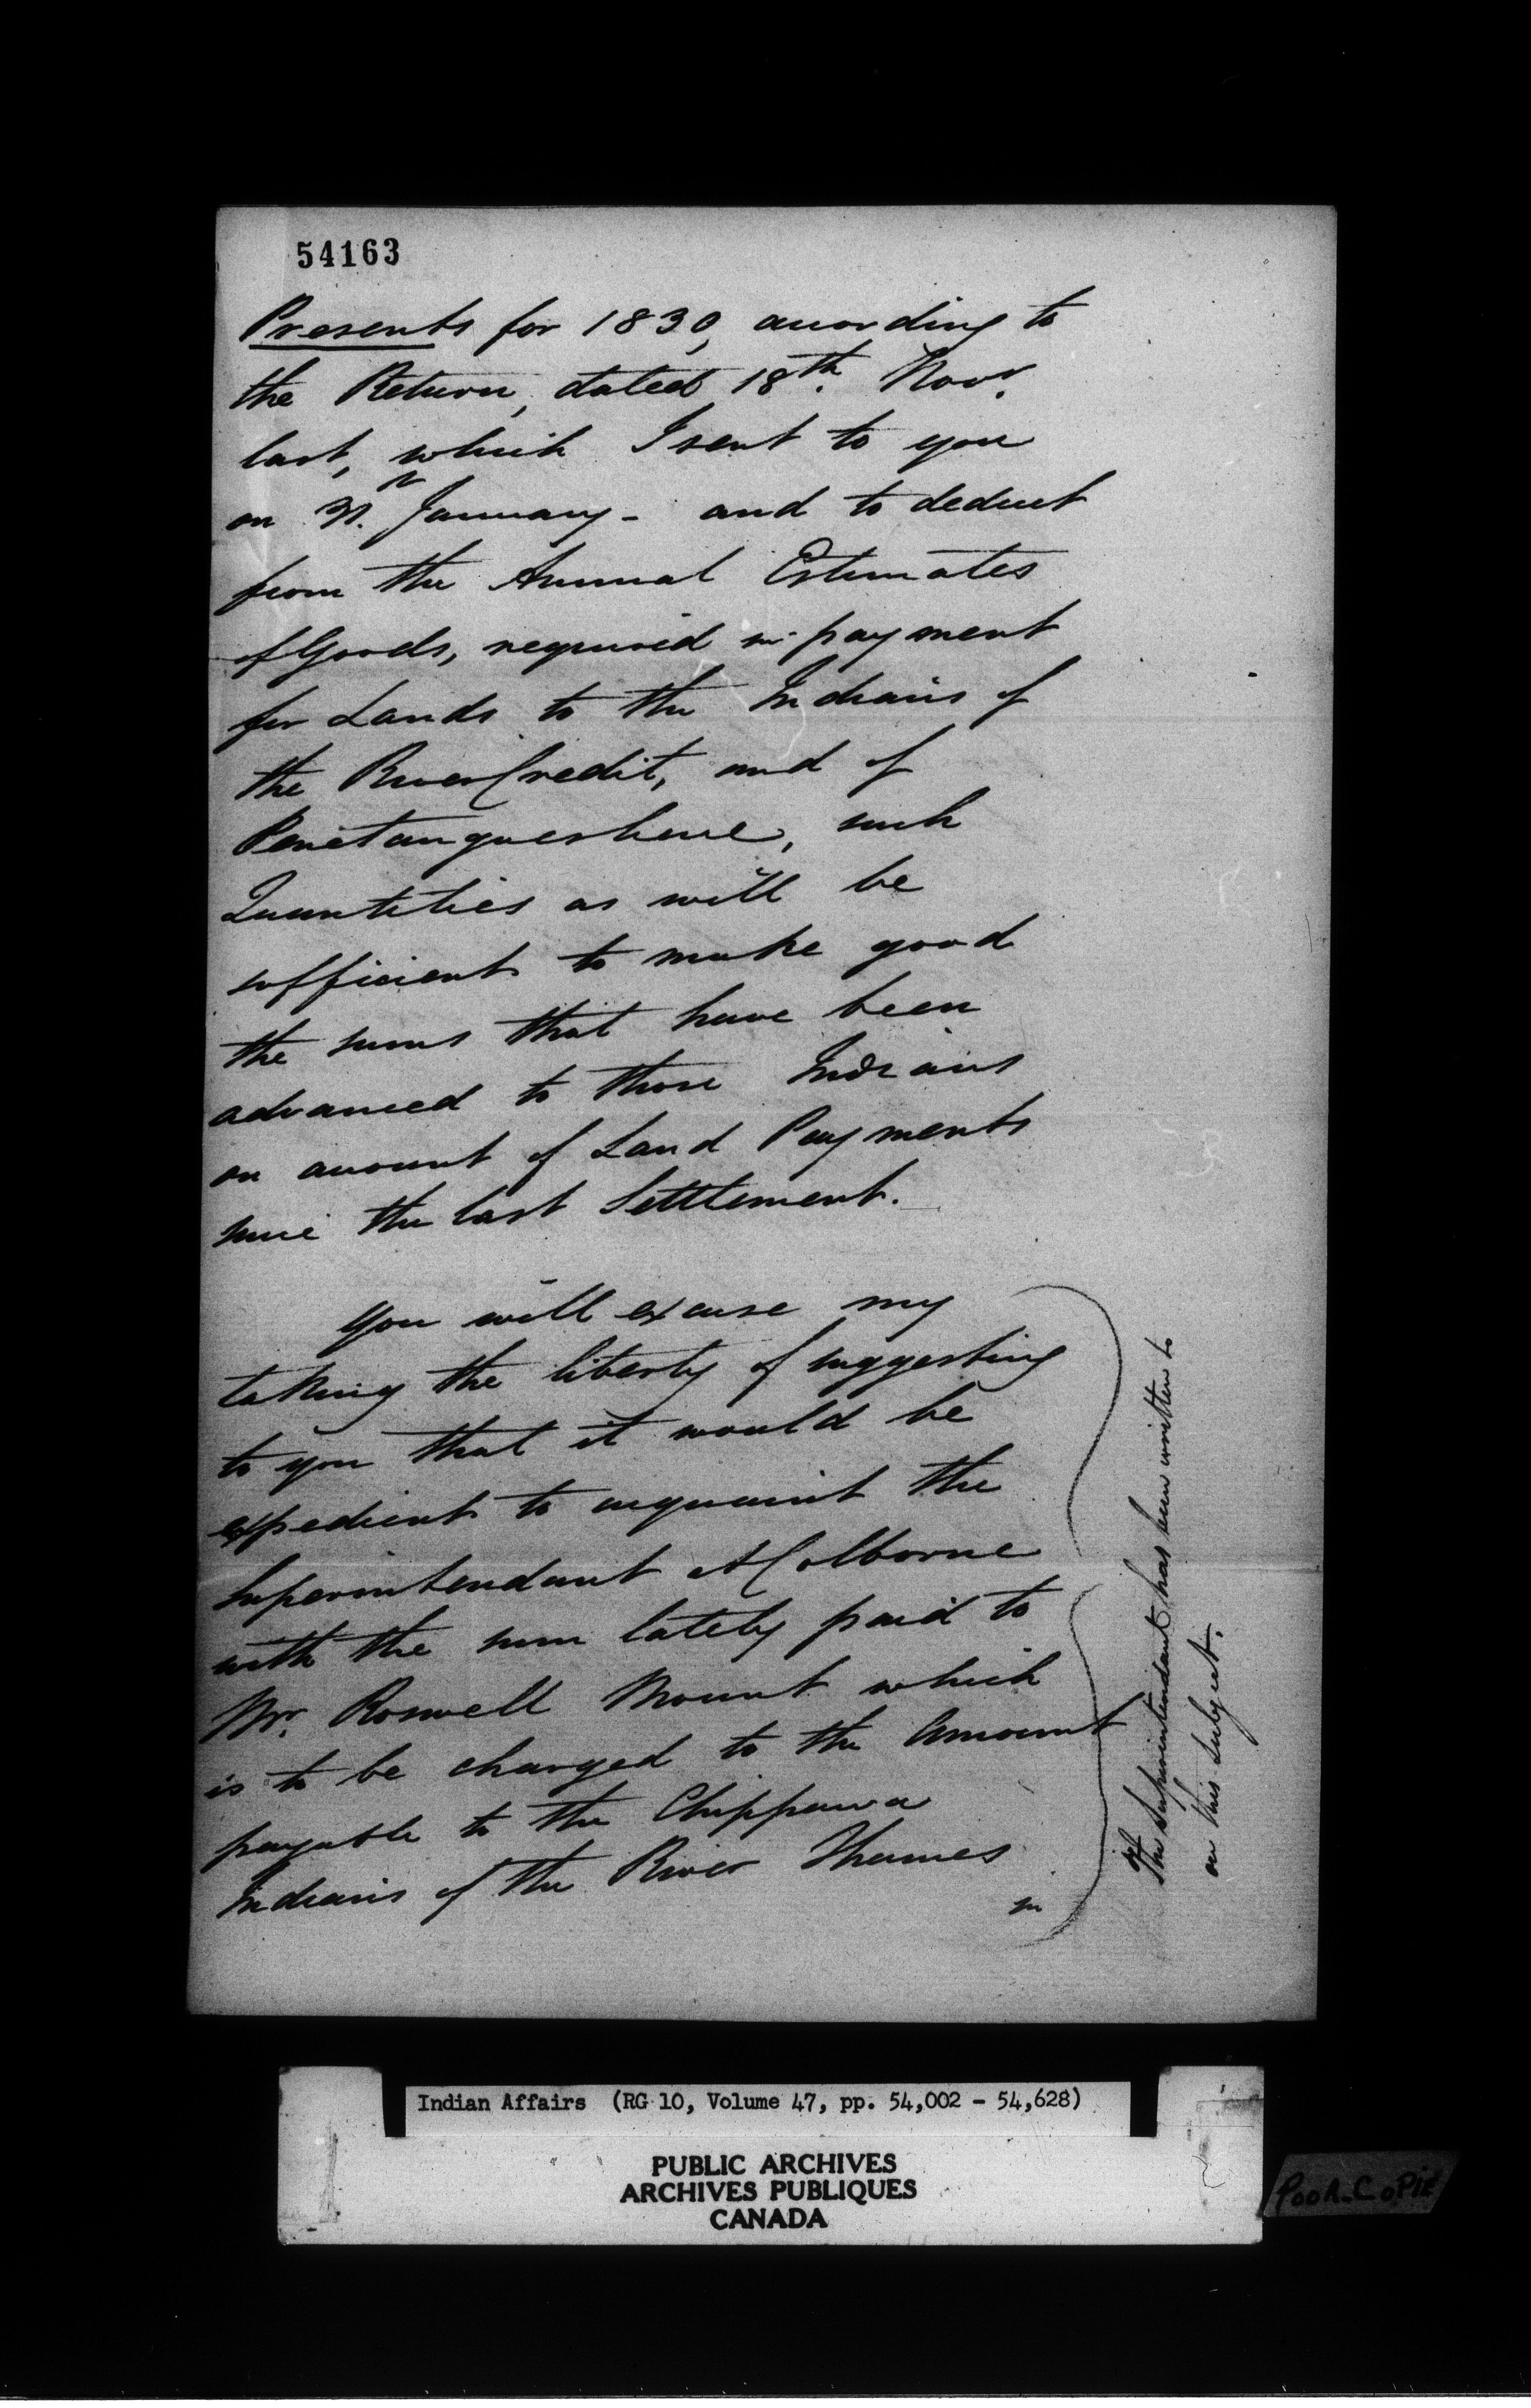 54163
Presents for 1830, according to
the Return, dated 18th. Novr.
last, which I sent to you
on January - and to deduct
from the Annual Estimates
of Goods, required in payment
for Lands to the Indians of
the River Credit, and of
Penetangueshene, such
Quantities as will be
sufficient to make good
the sums that have been
advanced to those Indians
on account of Land Payments
since the last Settlement.
You will excuse my
taking the liberty of suggesting
to you that it would be
expedient to acquaint the
Superintendant at Colborne
with the sum lately paid to
Mr. Roswell Mount which
is to be charged to the Amount
payable to the Chippawa
Indians of the River Thames
in
The Superintendant has been written to
on this subject.
Indian Affairs (RG 10, Volume 47, pp. 54,002 - 54,628)
PUBLIC ARCHIVES
ARCHIVES PUBLIQUES
CANADA
POOR COPIE